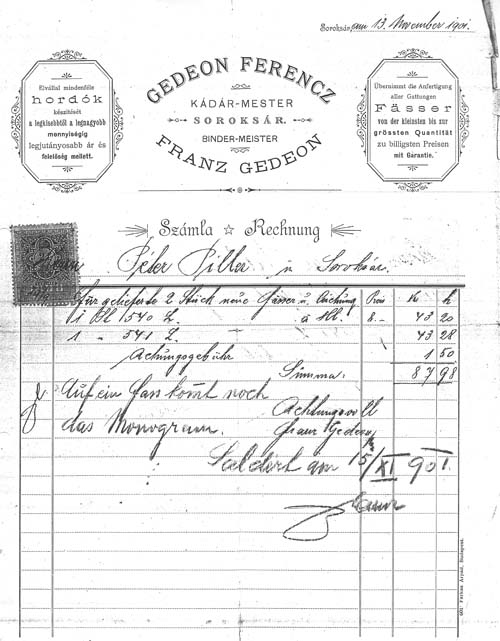 Soroksár, am 13. November 1901.
GEDEON FERENCZ
KÁDÁR-MESTER
SOROKSÁR.
BINDER-MEISTER
FRANZ GEDEON
Elvállal mindenféle
hordók
készítését
a legkisebbtől a legnagyobb
mennyiségig
legjutányosabb ár és
felelőség mellett.
Übernimmt die Anfertigung
aller Gattungen
Fässer
von der kleinsten bis zur
grössten Quantität
zu billigsten Preisen
mit Garantie.
Számla ☆ Rechnung
Herrn Péter Piller in Soroksár.
für gelieferte 2 Stück neue Fässer u. Aichung Preis K h
1 Hl 1540 L. a Hl. 8.- 43 20
1 " 541 L. " 43 28
Aichungsgebühr 1 50
Summa. 87 98
Auf ein Fass kommt noch
das Monogram.
Achtungsvoll
Franz Gedeon
Saldirt am 15/XI 901.